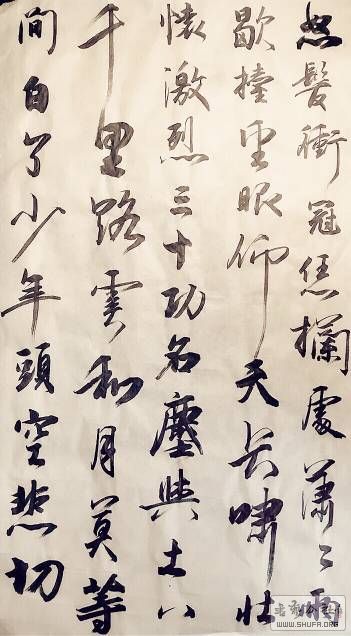 怒髮衝冠凭欄處瀟々雨
歇擡望眼仰天长嘯壯
懷激烈三十功名塵與土八
千里路雲和月莫等
閒白了少年頭空悲切
WWW.SHUFA.ORG